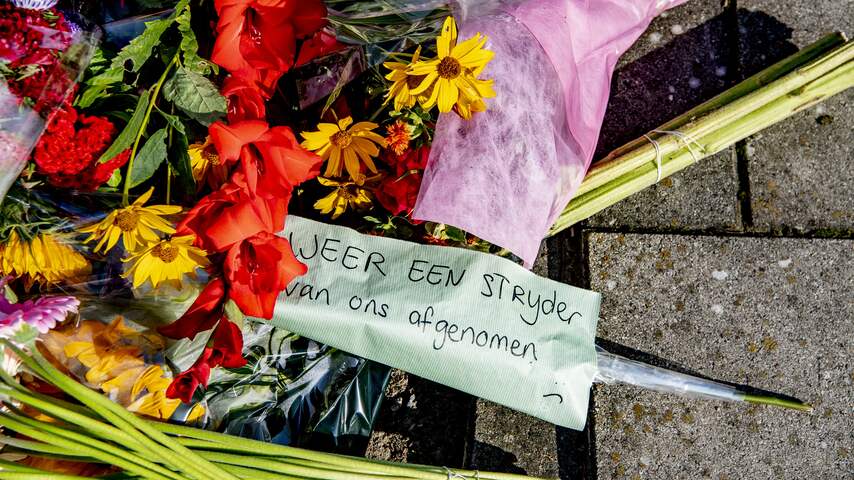 WEER EEN STRyder
van ons afgenomen